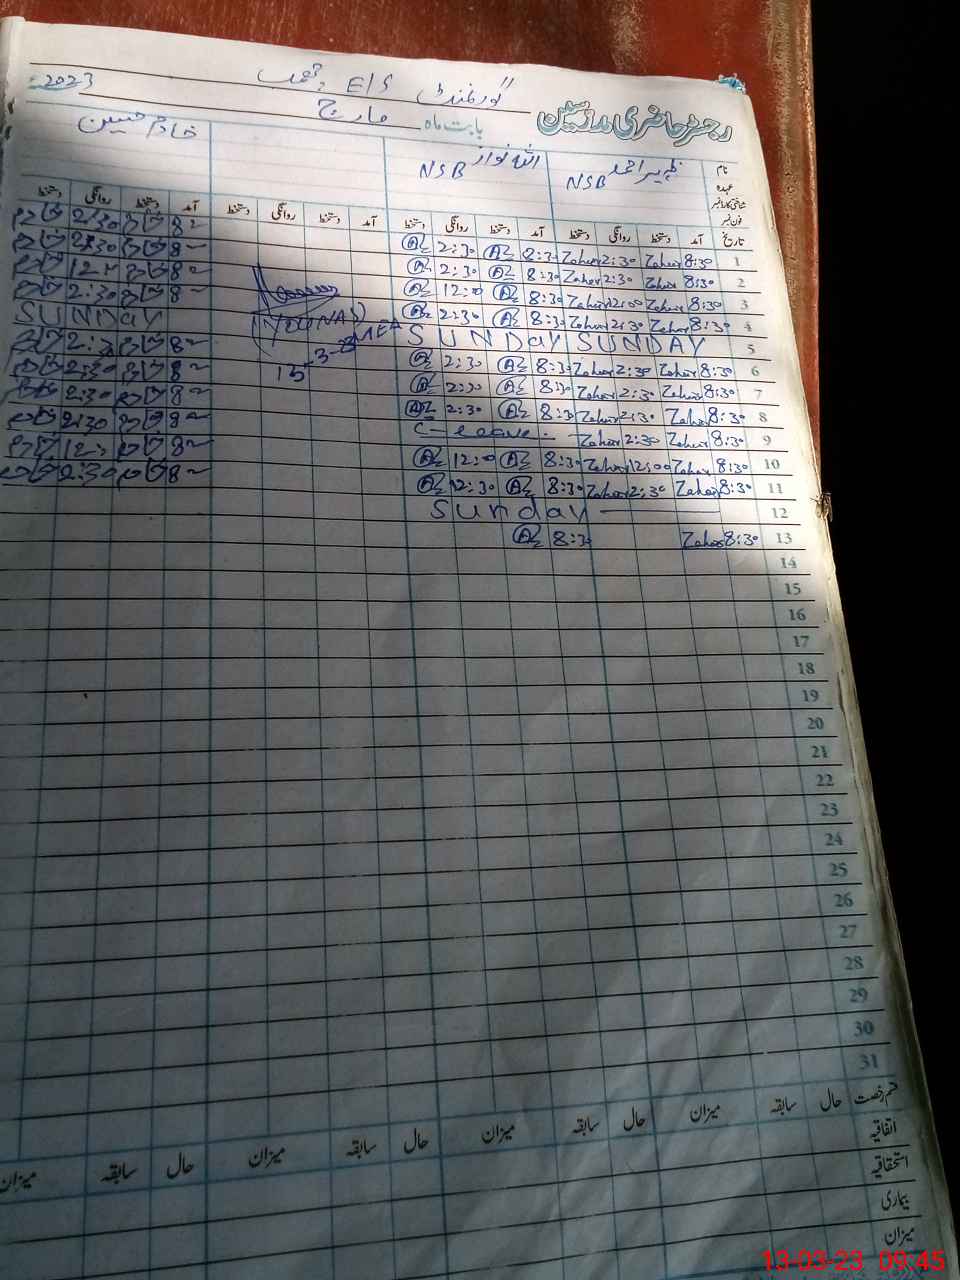 گورنمنٹ E/S
2023
رجسٹر حاضری مدرسین
بابت ماہ مارچ
نام ظہیر احمد اللہ نواز خادم حسین
عہدہ NSB NSB
شناختی کارڈ نمبر
فون نمبر
تاریخ آمد دستخط روانگی دستخط آمد دستخط روانگی دستخط آمد دستخط روانگی دستخط آمد دستخط روانگی دستخط
1 8:30 Zaheer 2:30 Zaheer 8:30 2:30 8 2:30
2 8:30 Zaheer 2:30 Zaheer 8:30 2:30 8 2:30
3 8:30 Zaheer 12:00 Zaheer 8:30 12:00 8 12
4 8:30 Zaheer 2:30 Zaheer 8:30 2:30 8 2:30
5 SUNDAY SUNDAY SUNDAY
6 8:30 Zaheer 2:30 Zaheer 8:30 2:30 8 2:30
7 8:30 Zaheer 2:30 Zaheer 8:30 2:30 8 2:30
8 8:30 Zaheer 2:30 Zaheer 8:30 2:30 8 2:30
9 8:30 Zaheer 2:30 Zaheer C-leave. 8 2:30
10 8:30 Zaheer 12:00 Zaheer 8:30 12:00 8 12
11 8:30 Zaheer 2:30 Zaheer 8:30 12:30 8 2:30
12 Sunday
13 8:30 Zaheer 8:30
14
15
16
17
18
19
20
21
22
23
24
25
26
27
28
29
30
31
قسم رخصت حال سابقہ میزان حال سابقہ میزان حال سابقہ میزان حال سابقہ میزان
اتفاقیہ
استحقاقیہ
بیماری
میزان
13-03-23 09:45